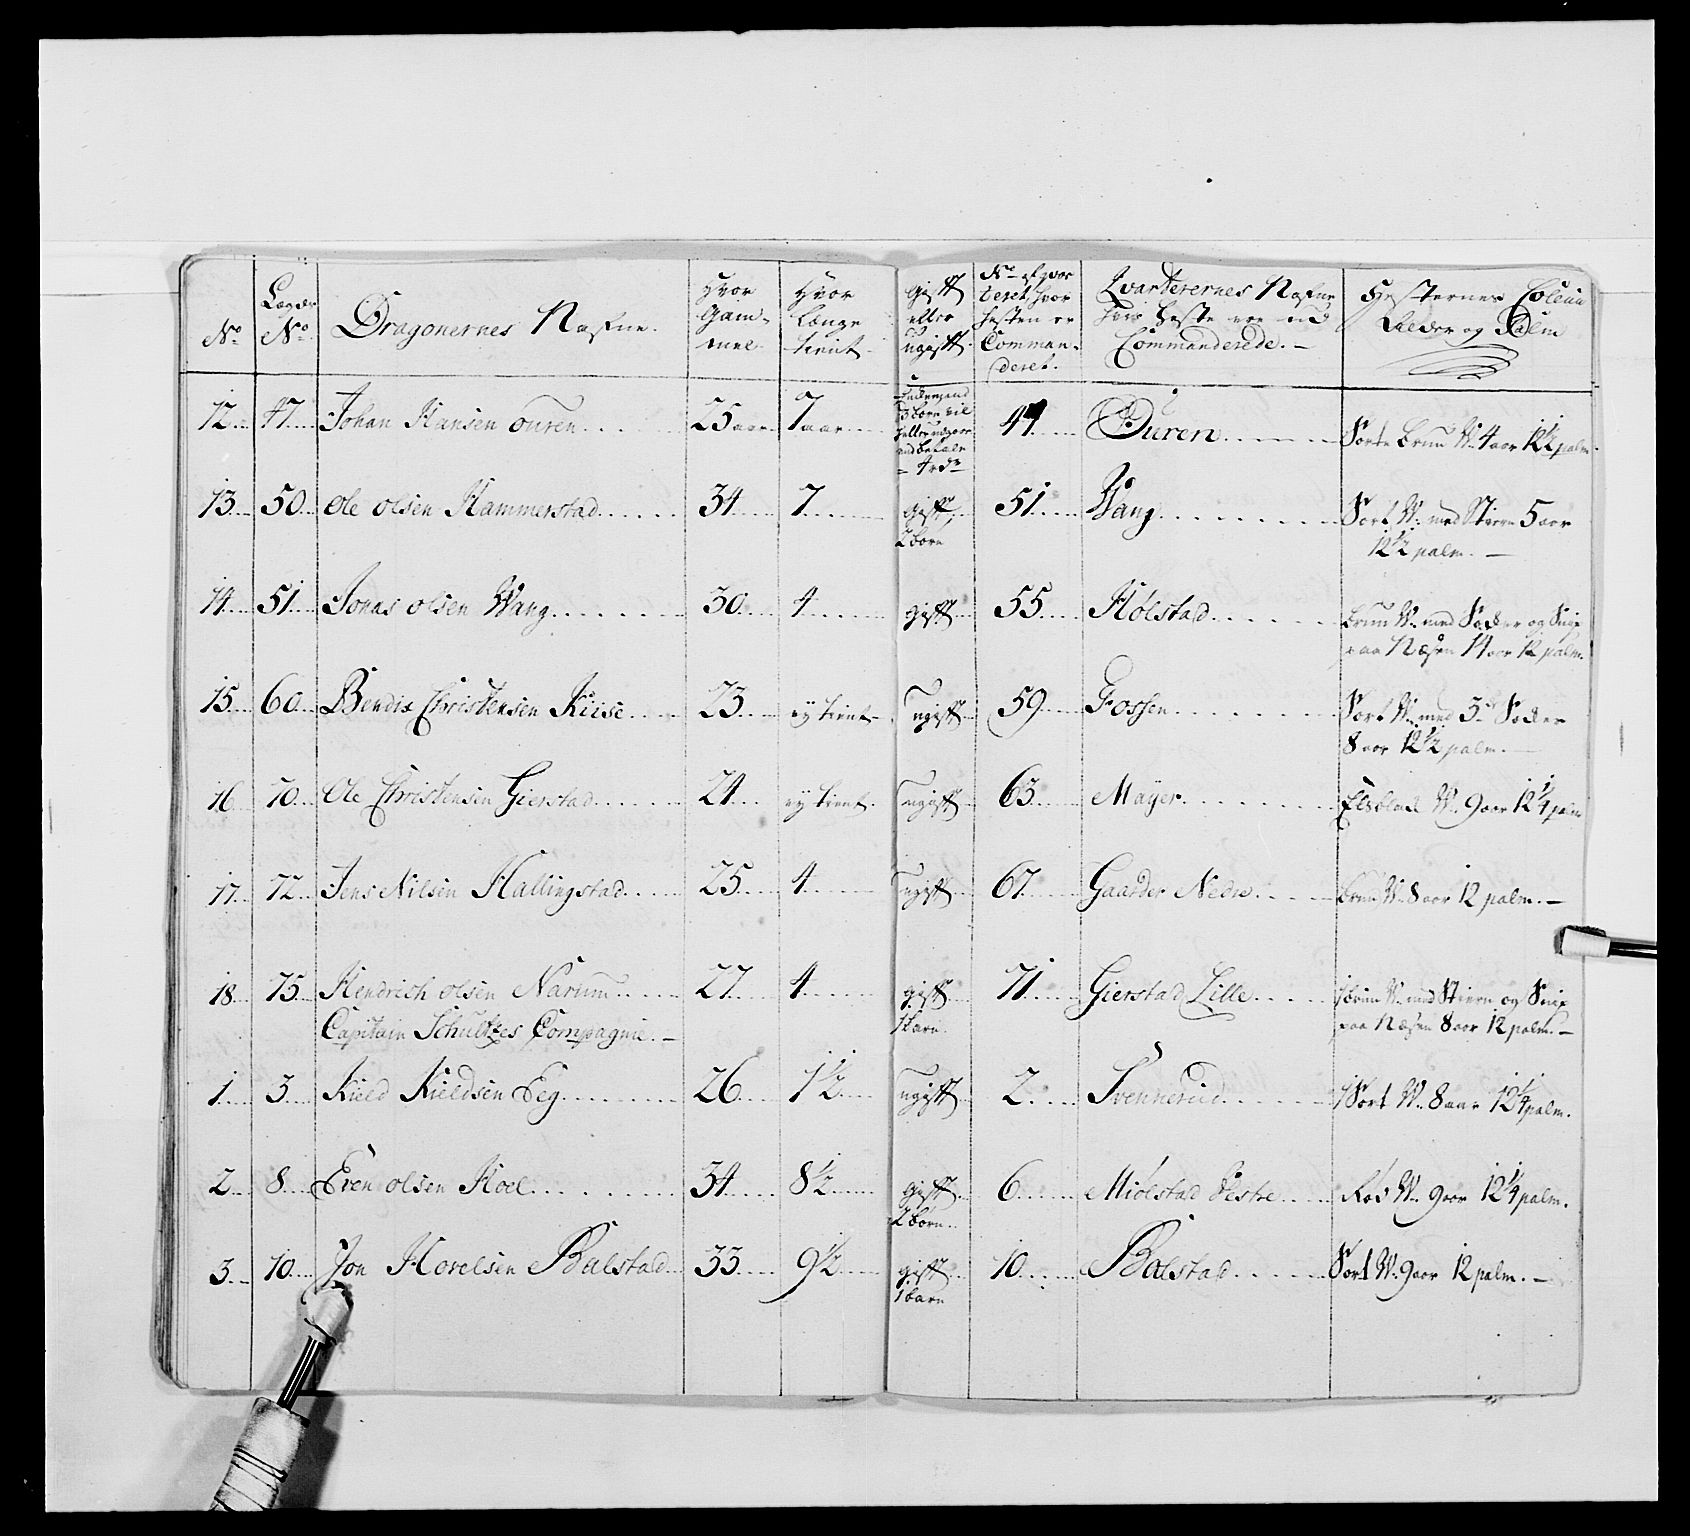 No | Lægds No | Dragonernes Nafne. | Hvor Gam- mel | Hvor Længe tient | gift eller ugift | No af qvar teret, hvor hesten er Comman- deret. | Qvarterernes Nafne hvis heste ere ... Commanderede. | Hesternes Coleur Alder og Palm
12. 47. Johan Hansen ouren 25 aar 7 aar 3 børn vil 47 Ouren Sorte brun W. 4 aar 12½ palm.
13. 50. Ole olsen Hammerstad 34 7 gift, 2 børn 51 Vang Sort W. med Stiern 5 aar
12½ palm.
14. 51. Jonas olsen Wang 30 4 gift 55 Hølstad brun W. med Soder og Snip
paa Næsen 14 aar 12 palm.
15. 60. Bendix Christensen Kiise 23 ey tient ugift 59 Fossen Sort W. med 3de Soder
8 aar 12½ palm.
16. 70. Ole Christensen Gierstad 24 ey tient ugift 63 Mayer W. 9 aar 12¼ palm
17. 72. Jens Nilsen Hallingstad 25 4 ugift 67 Gaarder Nedre brun W. 8 aar 12 palm.
18. 75. Hendrich olsen Narum 27 4 gift 1 barn 71 Gierstad Lille brun W. med Stiern og Snip
paa Næsen 8 aar 12 palm.
Capitain Schultzes Compagnie.
1. 3. Kield Kieldsen Eeg 26 1½ ugift 2 Svennerud Sort W. 8 aar 12¼ palm.
2. 8. Even olsen Hoel 34 8½ gift 2 børn 6 Miølstad Vestre Rød W. 9 aar 12¼ palm.
3. 10. Jon Hovelsen Balstad 33 9½ gift 1 barn 10 Balstad Sort W. 9 aar 12 palm.